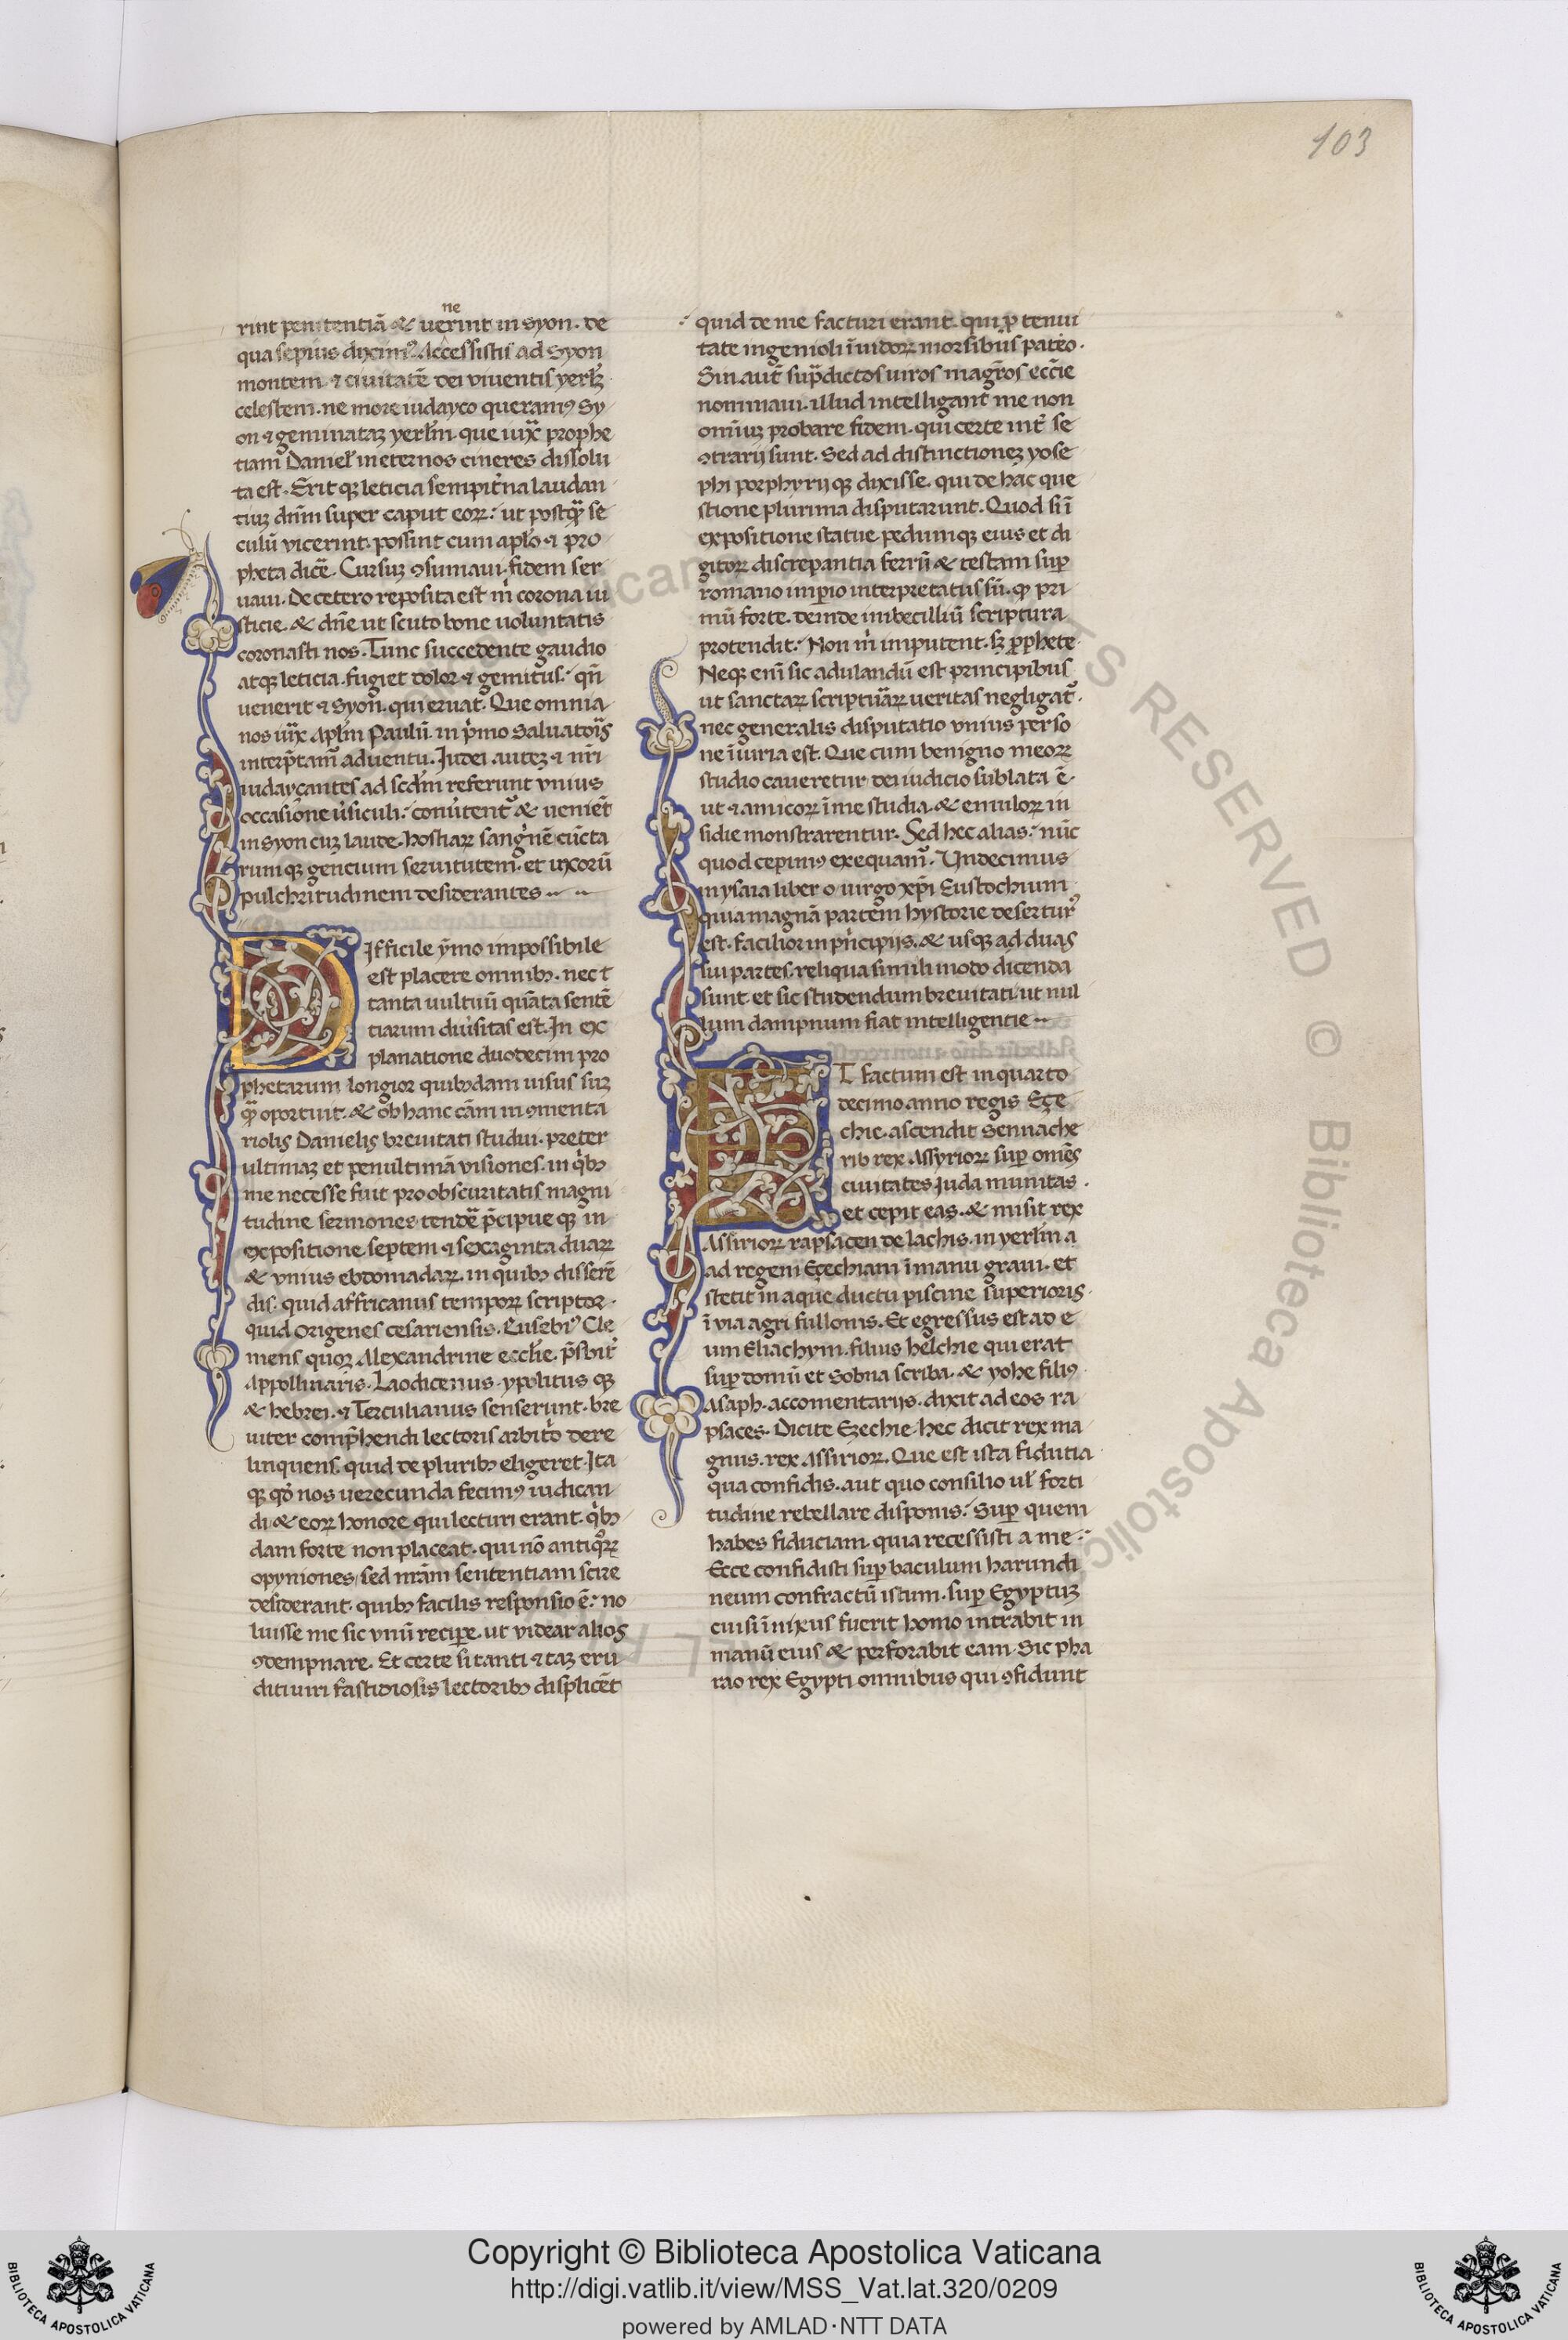 103
rint penitentiã & uerint in syon. de
ne
qua sepius diximꝰ. Accessistis ad Syon
montem ⁊ ciuitatẽ dei viuentis yerlꝫ
celestem. ne more iudayco queramꝰ Sy
on ⁊ geminataꝫ yerl̃m. que iuxͣ prophe
tiam Danieľ in eternos cineres dissolu
ta est. Erit qꝫ leticia sempit̾na laudan
tiuꝫ dñm super caput eoꝝ: ut postqͣ̃ se
culũ vicerint. possint cum aplõ ⁊ pro
pheta dicẽ. Cursuꝫ ꝯsumaui. fidem ser
uaui. De cetero reposita est m̾ corona iu
sticie. & dñe ut scuto bone uoluntatis
coronasti nos. Tunc succedente gaudio
atqꝫ leticia. fugiet dolor ⁊ gemitus: qñ
uenerit ⁊ Syon. qui eruat. Que omnia
nos iuxͣ Apl̃m Paulũ. in p̾mo Saluatoͥs
interp̃tamͬ aduentu. Iudei auteꝫ ⁊ nr̃i
iudayçantes ad scd̃m referunt vnius
occasione u̾siculi: conu̾tentͬ & ueniẽt
in syon cuꝫ laude. hostiaꝝ sang̾nẽ cũcta
rum qꝫ gencium seruitutem. et uxorũ
pulchritudinem desiderantes
Difficile ỹmo impossibile
est placere omnibꝫ. nec t
tanta uultuũ quãta sentẽ
tiarum diu̾sitas est. In ex
planatione duodecim pro
phetarum longior quibꝫdam uisus suꝫ
qͣ̃ oportuit. & ob hanc cãm in ꝯmenta
riolis Danielis breuitati studui. preter
ultimaꝫ et penultimã visiones. in q̾bꝫ
me necesse fuit pro obscuritatis magni
tudine sermones tendẽ p̃cipue qꝫ in
expositione septem ⁊ sexaginta duaꝝ
& vnius ebdomadaꝝ. in quibꝫ disserẽ
dis. quid affricanus tempoꝝ scriptor.
quid Origenes cesariensis. Eusebiꝰ Cle
mens quoqꝫ Alexandrine eccľie. p̃sbit̾
Appollinaris. Laodicenus. ypolitus qꝫ
& hebrei. ⁊ Terculianus senserunt. bre
uiter comp̃hendi lectoris arbit̾o dere
linquens. quid de pluribꝫ eligeret. Ita
qꝫ qđ nos uerecunda fecimꝰ iudican
di & eoꝝ honore qui lecturi erant. q̾bꝫ
dam forte non placeat. qui nõ antiqͦꝝ
opyniones sed nr̃am sententiam scire
desiderant. quibꝫ facilis responsio ẽ: no
luisse me sic vnũ recipẽ. ut videar alios
ꝯdempnare. Et certe si tanti ⁊ taꝫ eru
diti uiri fastidiosis lectoribꝫ displicẽt
quid de me facturi erant. qui ꝓ tenui
tate ingenioli ĩuidoꝝ morsibus pateo.
Sin aut̃ sup̃dictos uiros magr̃os eccľie
nominaui. illud intelligant me non
om̃iuꝫ probare fidem. qui certe int̾ se
ꝯtrarij sunt. Sed ad distinctioneꝫ yose
phi porphyrij qꝫ dixisse. qui de hac que
stione plurima disputarunt. Quod si ĩ
expositione statue pedumqꝫ eius et di
gitoꝝ discrepantia ferrũ & testam suꝑ
romano imꝑio interpretatus sũ. qđ pri
mũ forte. deinde imbecilliũ scriptura
protendit: Non m̾ imputent. sꝫ ꝓphete
Neqꝫ enĩ sic adulandũ est principibus
ut sanctaꝝ scriptuͣꝝ ueritas negligatͬ.
nec generalis disputatio vnius perso
ne ĩiuria est. Que cum benigno meoꝝ
studio caueretur dei iudicio sublata ẽ.
ut ⁊ amicoꝝ ĩ me studia. & emuloꝝ in
sidie monstrarentur. Sed hec alias: nũc
quod cepimꝰ exequamͬ. Undecimus
in ysaia liber o uirgo xp̃i Eustochium
quia magnã partem hystorie deserturꝰ
est. facilior in p̾ncipijs. & usqꝫ ad duas
sui partes. reliqua simili modo dicenda
sunt. et sic studendum breuitati. ut nul
lum dampnum fiat intelligentie
ET factum est in quarto
decimo anno regis Eze
chie. ascendit Sennache
rib rex Assyrioꝝ suꝑ om̃es
ciuitates Iuda munitas.
et cepit eas. & misit rex
Assirioꝝ rapsacen de lachis. in yerl̃m a
ad regem Ezechiam ĩ manu graui. et
stetit in aque ductu piscine superioris.
ĩ via agri fullonis. Et egressus est ad e
um Eliachym. filius helchie qui erat
suꝑ domũ et Sobna scriba. & yohe filiꝰ
Asaph. accomentarijs. dixit ad eos ra
psaces. Dicite Ezechie. hec dicit rex ma
gnus. rex Assirioꝝ. Que est ista fidutia
qua confidis. aut quo consilio uľ forti
tudine rebellare disponis: Suꝑ quem
habes fiduciam. quia recessisti a me:
Ecce confidisti suꝑ baculum harundi
neum confractũ istum. suꝑ Egyptuꝫ
cui si ĩnixus fuerit homo intrabit in
manũ eius & perforabit eam. Sic pha
rao rex Egypti omnibus qui ꝯfidunt
Copyright © Biblioteca Apostolica Vaticana
http://digi.vatlib.it/view/MSS_Vat.lat.320/0209
powered by AMLAD·NTT DATA
BIBLIOTECA APOSTOLICA VATICANA
BIBLIOTECA APOSTOLICA VATICANA